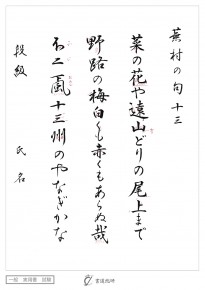 蕪村の句十三
菜の花や遠山どりの尾上まで
野路の梅白くも赤くもあらぬ哉
不二颪十三州のやなぎかな
段級　氏名
一般　実用書　試験
書道教師